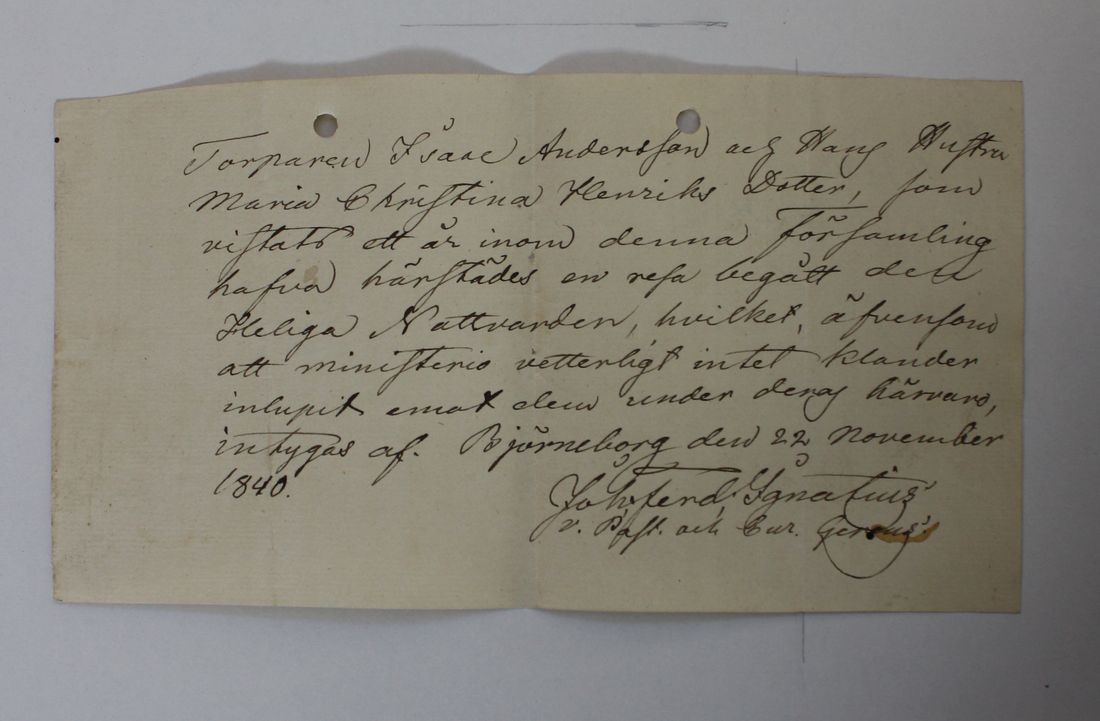 Torparen Isaac Andersson och Hans Hustru
Maria Christina Henriks Dotter, som
vistats ett år inom denna Församling
hafva härstädes en resa begått den
Heliga Nattvarden, hvilket, äfvensom
att ministerio vetterligt intet klander
inlupit emot dem under deras härvaro,
intygas af. Björneborg den 22 November
1840.
Joh. Ferd. Ignatius.
v. Past. och Cur. Gerens.